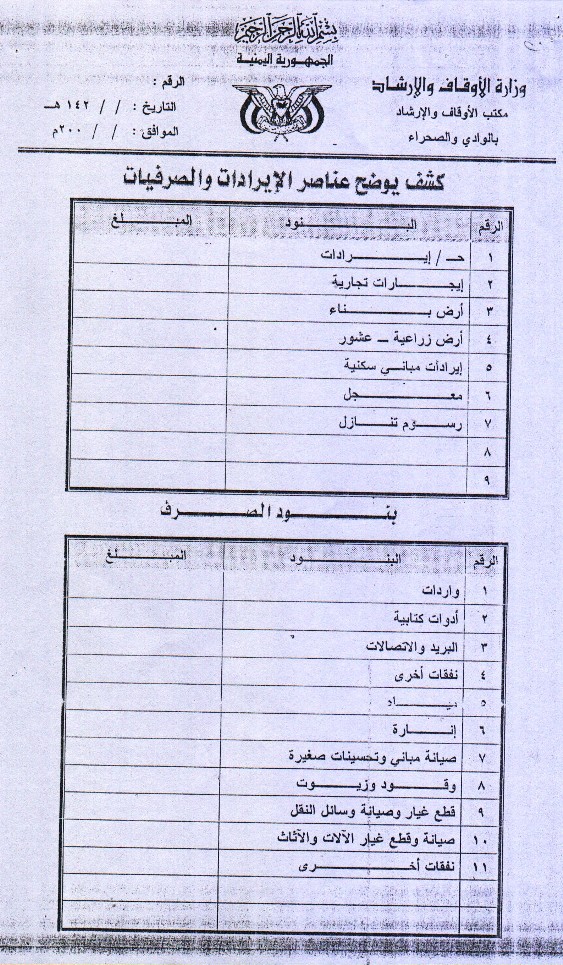 بسم الله الرحمن الرحيم
الجمهورية اليمنية
وزارة الأوقاف والإرشاد
مكتب الأوقاف والإرشاد
بالوادي والصحراء
الرقم :
التاريخ : / / ١٤٢ هـ
الموافق : / / ٢٠٠م
كشف يوضح عناصر الإيرادات والصرفيات
الرقم البنود المبلغ
١ حـ / إيرادات
٢ إيجارات تجارية
٣ أرض بناء
٤ أرض زراعية ـ عشور
٥ إيرادات مباني سكنية
٦ معجل
٧ رسوم تنازل
٨
٩
بنود الصرف
الرقم البنود المبلغ
١ واردات
٢ أدوات كتابية
٣ البريد والاتصالات
٤ نفقات أخرى
٥ ميـاه
٦ إنارة
٧ صيانة مباني وتحسينات صغيرة
٨ وقود وزيوت
٩ قطع غيار وصيانة وسائل النقل
١٠ صيانة وقطع غيار الآلات والآثاث
١١ نفقات أخرى